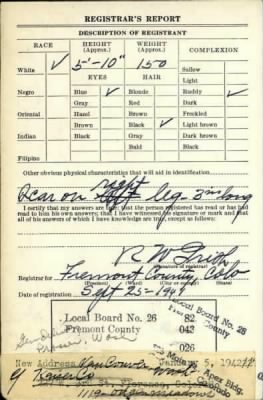 REGISTRAR'S REPORT
DESCRIPTION OF REGISTRANT
RACE HEIGHT (Approx.) WEIGHT (Approx.) COMPLEXION
White ✓ 5'-10" 150 Sallow
EYES HAIR Light
Negro Blue ✓ Blonde Ruddy ✓
Gray Red Dark
Oriental Hazel Brown Freckled
Brown Black ✓ Light brown
Indian Black Gray Dark brown
Bald Black
Filipino
Other obvious physical characteristics that will aid in identification
right
Scar on leg 3 in long
I certify that my answers are true; that the person registered has read or has had
read to him his own answers; that I have witnessed his signature or mark and that
all of his answers of which I have knowledge are true,
except as follows:
R W
Registrar for Fremont County, Colo
Date of registration Sept 25-1941
Local Board No. 26 82
Fremont County 043
026
Local Board No. 26
Apex Bldg.
New Address Vancouver 5, 1942
Kaiser Co
Florence,